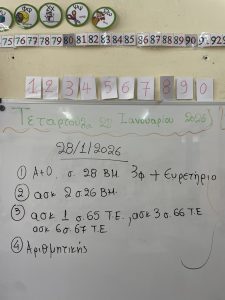 75 76 77 78 79 80 81 82 83 84 85 86 87 88 89 90 91 92
1 2 3 4 5 6 7 8 9 0
Τετάρτη 28 Ιανουαρίου 2026
28/1/2026
① Α+Ο, σ. 28 Β.Μ. 3φ + Ευρετήριο
② ασκ 2 σ. 26 Β.Μ.
③ ασκ 1 σ. 65 Τ.Ε., ασκ 3 σ. 66 Τ.Ε
ασκ 6 σ. 67 Τ.Ε.
④ Αριθμητικής